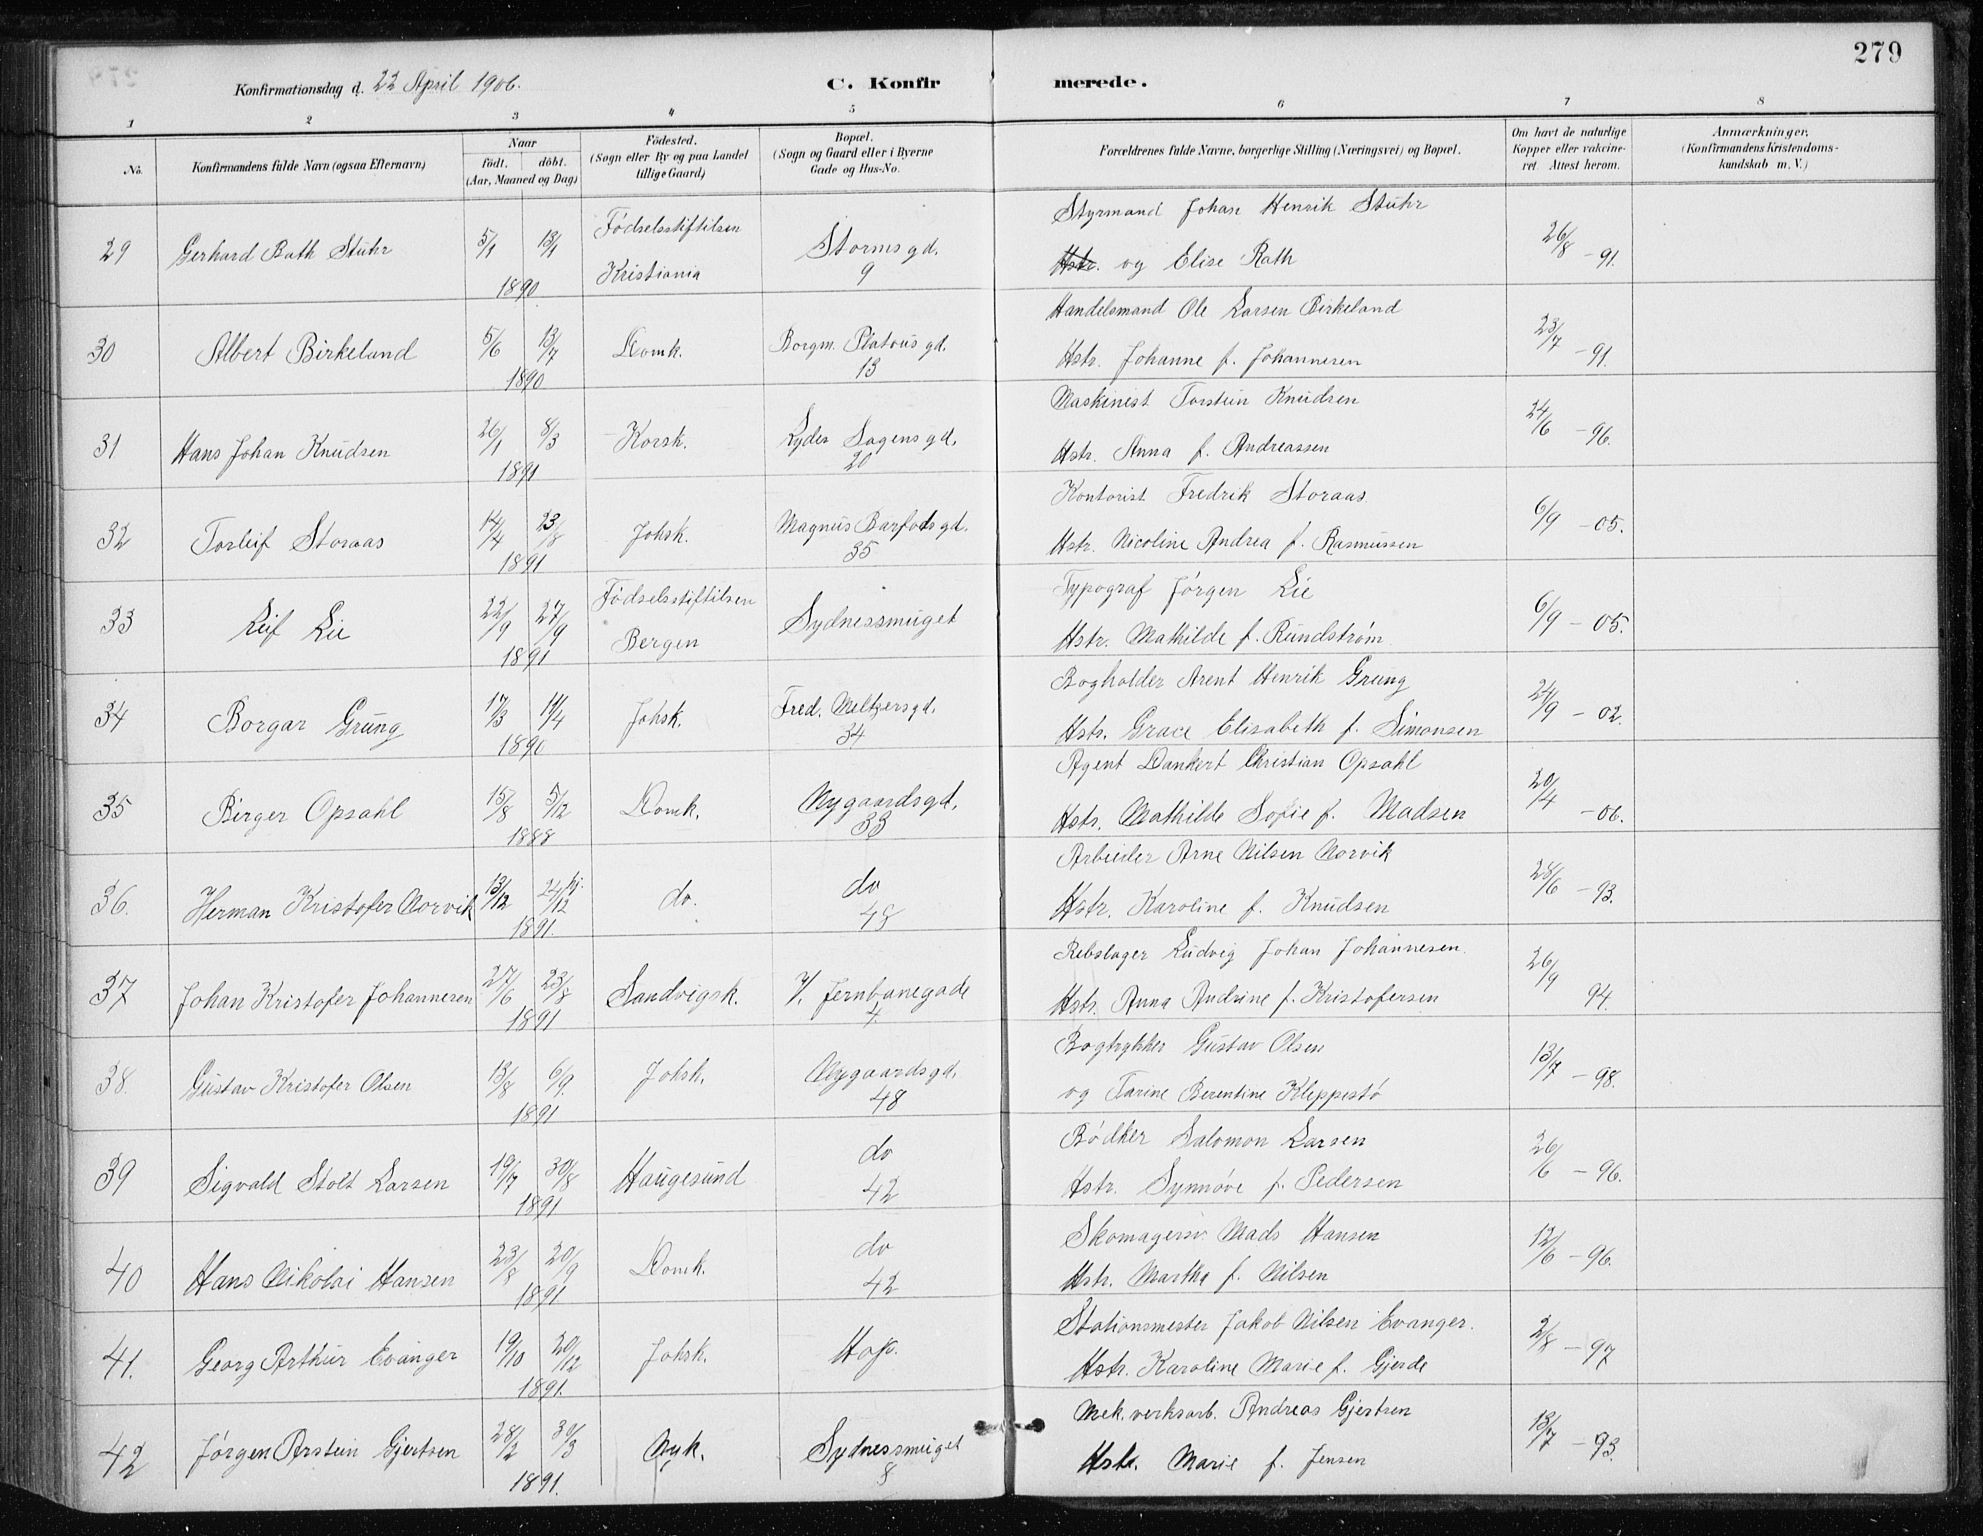 279
Konfirmationsdag d. 22 April 1906.
C. Konfirmerede.
1 2 3 4 5 6 7 8
No. Konfirmandens fulde Navn (ogsaa Efternavn) Naar födt. döbt. (Aar, Maaned og Dag) Födested. (Sogn eller By og paa Landet tillige Gaard) Bopæl. (Sogn og Gaard eller i Byerne Gade og Hus-No. Forældrenes fulde Navne, borgerlige Stilling (Næringsvei) og Bopæl. Om havt de naturlige Kopper eller vakcineret. Attest herom. Anmærkninger, (Konfirmandens Kristendomskundskab m. V.)
29 Gerhard Rath Stuhr 5/1 13/4 1890. Födselsstiftelsen Kristiania Stormsgd. 9 Styrmand Johan Henrik Stuhr Hstr. og Elise Rath 26/8 -91.
30 Albert Birkeland 5/6 13/7 1890 Domk. Borgm. Platousgd. 13 Handelsmand Ole Larsen Birkeland Hstr. Johanne f. Johannesen 23/7 -91.
31 Hans Johan Knudsen 26/1 8/3 1891 Korsk. Lyder Sagensgd. 20 Maskinist Torstein Knudsen Hstr. Anna f. Andreassen 24/6 -96.
32 Torleif Storaas 14/4 23/8 1891 Johsk. Magnus Barfodsgd. 35 Kontorist Fredrik Storaas Hstr. Nicoline Andrea f. Rasmussen 6/9 -05.
33 Leif Lie 22/9 27/9 1891 Födselsstiftelsen Bergen Sydnessmuget Typograf Jörgen Lie Hstr. Mathilde f. Rundström 6/9 -05.
34 Borgar Grung 17/3 11/4 1890 Johsk. Fred. Meltzersgd. 34 Bogholder Arent Henrik Grung Hstr. Grace Elisabeth f. Simonsen 24/9 -02.
35 Birger Opsahl 15/8 5/12 1888 Domk. Nygaardsgd. 33 Agent Dankert Christian Opsahl Hstr. Mathilde Sofie f. Madsen 20/4 -06.
36. Herman Kristofer Norvik 13/12 24/12 hj. 1891. do. do 48 Arbeider Arne Nilsen Norvik Hstr. Karoline f. Knudsen 28/6 -93.
37 Johan Kristofer Johannesen 27/6 23/8 1891 Sandvigsk. V. Jernbanegade 4. Rebslager Ludvig Johan Johannesen. Hstr. Anna Andrine f. Kristofersen 26/9 94.
38. Gustav Kristofer Olsen 13/8 6/9. 1891 Johsk. Nygaardsgd. 48 Bogtrykker Gustav Olsen og Tarine Berentine Kleppestö 13/7 -98.
39 Sigvald Stolt Larsen 19/7 30/8 1891 Haugesund do 42 Bödker Salomon Larsen Hstr. Synnöve f. Pedersen 26/6 -96.
40 Hans Nikolai Hansen 23/8 20/9 1891 Domk. do 42 Skomagersv. Mads Hansen Hstr. Martha f. Nilsen 12/6 -96.
41. Georg Arthur Evanger 19/10 20/12 1891. Johsk. Hop. Stationsmester Jakob Nilsen Evanger. Hstr. Karoline Marie f. Gjerde 2/8 -97
42 Jörgen Arstein Gjertsen 28/2 30/3 1891. Nyk. Sydnessmuget 8 Mek. verksarb. Andreas Gjertsen Hstr. Marie f. Jensen 13/7 -93.